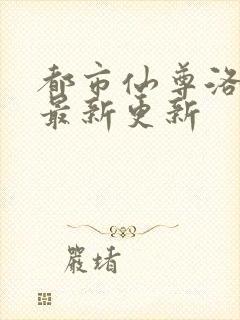 都市仙尊洛
最新更新
严堵